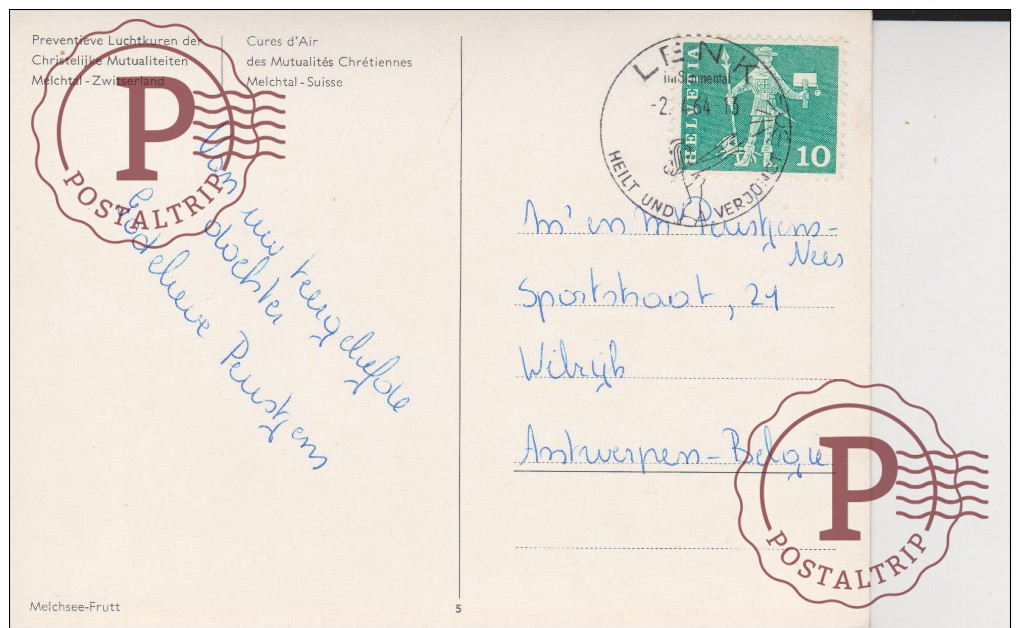 Preventieve Luchtkuren der
Christelijke Mutualiteiten
Melchtal - Zwitserland
Cures d'Air
des Mutualités Chrétiennes
Melchtal - Suisse
POSTALTRIP
Van uw teergeliefde
dochter
Godelieve Peustjens
Melchsee-Frutt
5
LENK
im Simmental
HEILT UND VERJÜNGT
HELVETIA
10
Mr en Mr Peustjens-
Nees
Sportstraat, 21
Wilrijk
Antwerpen - Belgie
POSTALTRIP